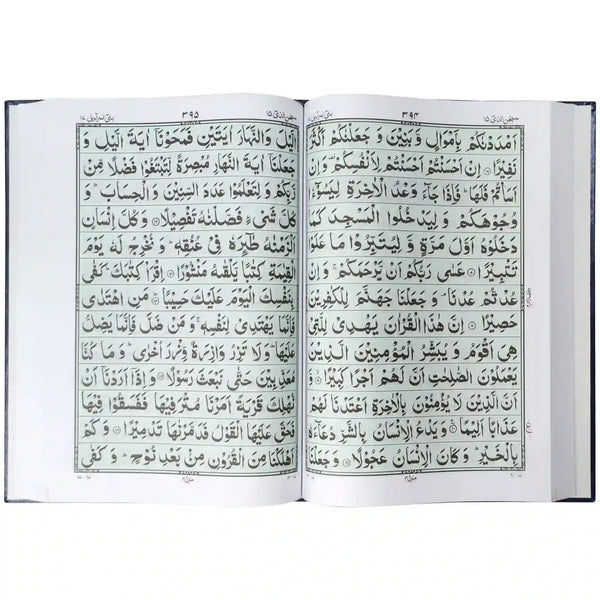 سبحٰن الذی ۱۵
۳۹۴
اَمْدَدْنٰكُمْ بِاَمْوَالٍ وَّ بَنِیْنَ وَ جَعَلْنٰكُمْ اَكْثَرَ
نَفِیْرًا ۝۶ اِنْ اَحْسَنْتُمْ اَحْسَنْتُمْ لِاَنْفُسِكُمْ ۫ وَ اِنْ
اَسَاْتُمْ فَلَهَا ؕ فَاِذَا جَآءَ وَعْدُ الْاٰخِرَةِ لِیَسُوْٓءٗا
وُجُوْهَكُمْ وَ لِیَدْخُلُوا الْمَسْجِدَ كَمَا
دَخَلُوْهُ اَوَّلَ مَرَّةٍ وَّ لِیُتَبِّرُوْا مَا عَلَوْا
تَتْبِیْرًا ۝۷ عَسٰی رَبُّكُمْ اَنْ یَّرْحَمَكُمْ ۚ وَ اِنْ
عُدْتُّمْ عُدْنَا ۘ وَ جَعَلْنَا جَهَنَّمَ لِلْكٰفِرِیْنَ
حَصِیْرًا ۝۸ اِنَّ هٰذَا الْقُرْاٰنَ یَهْدِیْ لِلَّتِیْ
هِیَ اَقْوَمُ وَ یُبَشِّرُ الْمُؤْمِنِیْنَ الَّذِیْنَ
یَعْمَلُوْنَ الصّٰلِحٰتِ اَنَّ لَهُمْ اَجْرًا كَبِیْرًا ۝۹ وَّ
اَنَّ الَّذِیْنَ لَا یُؤْمِنُوْنَ بِالْاٰخِرَةِ اَعْتَدْنَا لَهُمْ
عَذَابًا اَلِیْمًا ۝۱۰ وَ یَدْعُ الْاِنْسَانُ بِالشَّرِّ دُعَآءَهٗ
بِالْخَیْرِ ؕ وَ كَانَ الْاِنْسَانُ عَجُوْلًا ۝۱۱ وَ جَعَلْنَا
۳۹۵
بنیٓ اسرآءیل ۱۷
الَّیْلَ وَ النَّهَارَ اٰیَتَیْنِ فَمَحَوْنَاۤ اٰیَةَ الَّیْلِ وَ
جَعَلْنَاۤ اٰیَةَ النَّهَارِ مُبْصِرَةً لِّتَبْتَغُوْا فَضْلًا مِّنْ
رَّبِّكُمْ وَ لِتَعْلَمُوْا عَدَدَ السِّنِیْنَ وَ الْحِسَابَ ؕ وَ
كُلَّ شَیْءٍ فَصَّلْنٰهُ تَفْصِیْلًا ۝۱۲ وَ كُلَّ اِنْسَانٍ
اَلْزَمْنٰهُ طٰٓئِرَهٗ فِیْ عُنُقِهٖ ؕ وَ نُخْرِجُ لَهٗ یَوْمَ
الْقِیٰمَةِ كِتٰبًا یَّلْقٰىهُ مَنْشُوْرًا ۝۱۳ اِقْرَاْ كِتٰبَكَ ؕ كَفٰی
بِنَفْسِكَ الْیَوْمَ عَلَیْكَ حَسِیْبًا ۝۱۴ مَنِ اهْتَدٰی
فَاِنَّمَا یَهْتَدِیْ لِنَفْسِهٖ ۚ وَ مَنْ ضَلَّ فَاِنَّمَا یَضِلُّ
عَلَیْهَا ؕ وَ لَا تَزِرُ وَازِرَةٌ وِّزْرَ اُخْرٰی ؕ وَ مَا كُنَّا
مُعَذِّبِیْنَ حَتّٰی نَبْعَثَ رَسُوْلًا ۝۱۵ وَ اِذَاۤ اَرَدْنَاۤ اَنْ
نُّهْلِكَ قَرْیَةً اَمَرْنَا مُتْرَفِیْهَا فَفَسَقُوْا فِیْهَا
فَحَقَّ عَلَیْهَا الْقَوْلُ فَدَمَّرْنٰهَا تَدْمِیْرًا ۝۱۶ وَ كَمْ
اَهْلَكْنَا مِنَ الْقُرُوْنِ مِنْۢ بَعْدِ نُوْحٍ ؕ وَ كَفٰی